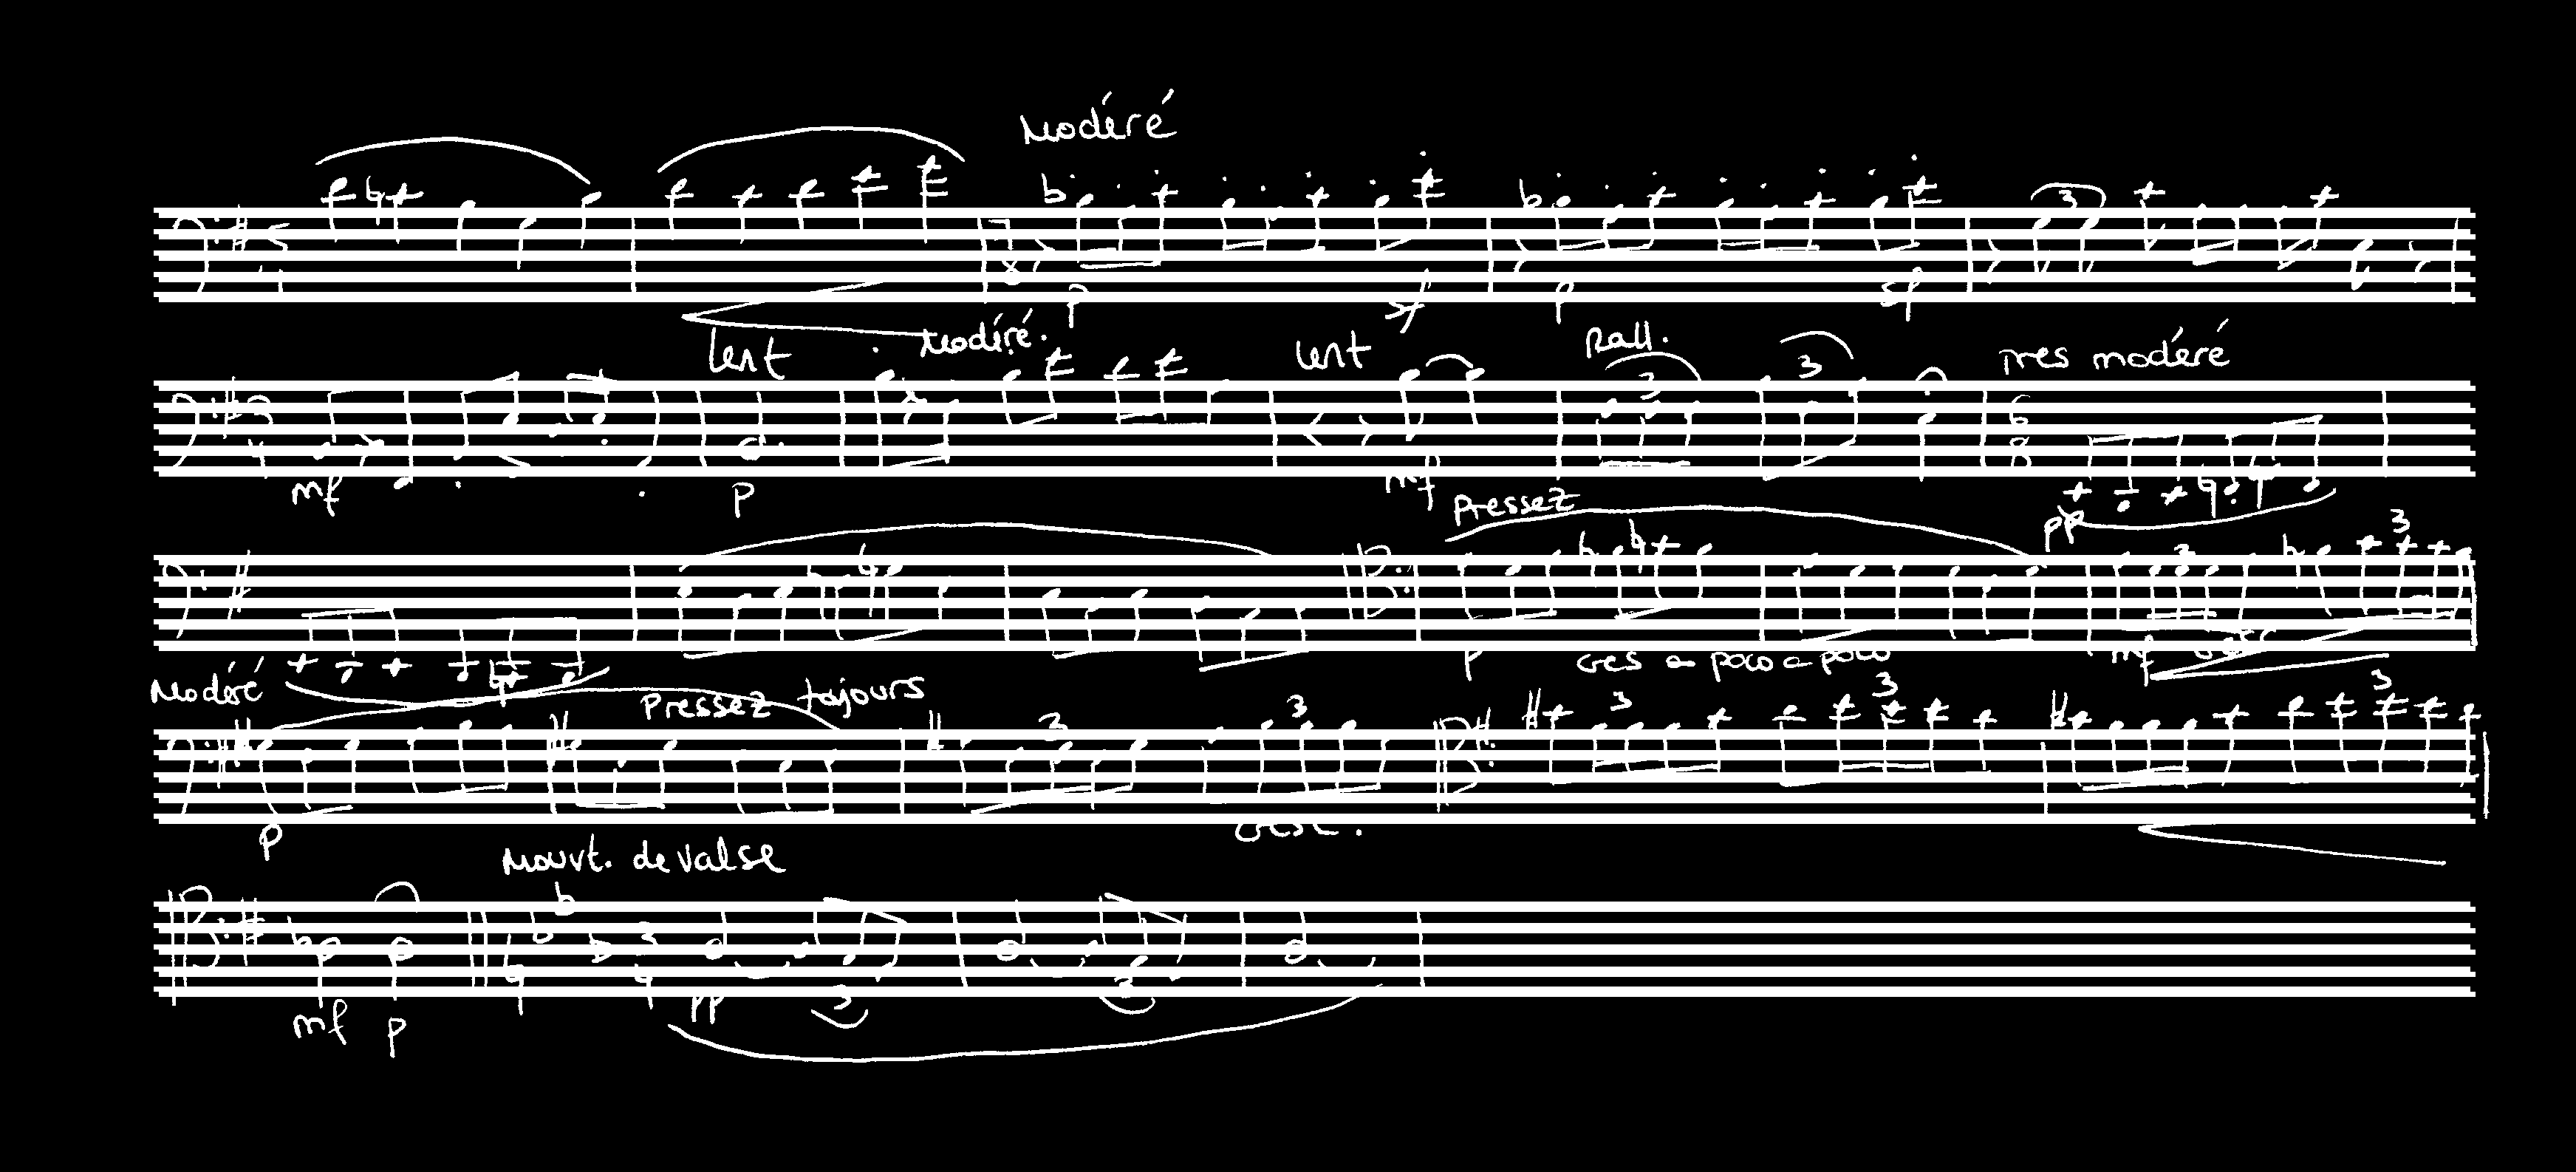 Modéré
p sf p sf 3
Lent Modéré. Lent Rall. Tres modéré
3 3
mf p mf pp
Pressez
3 3
p cres a poco a poco mf
Modéré Pressez toujours
3 3 3 3 3
p cresc.
Mouvt. de valse
3 4
mf p pp 3 3